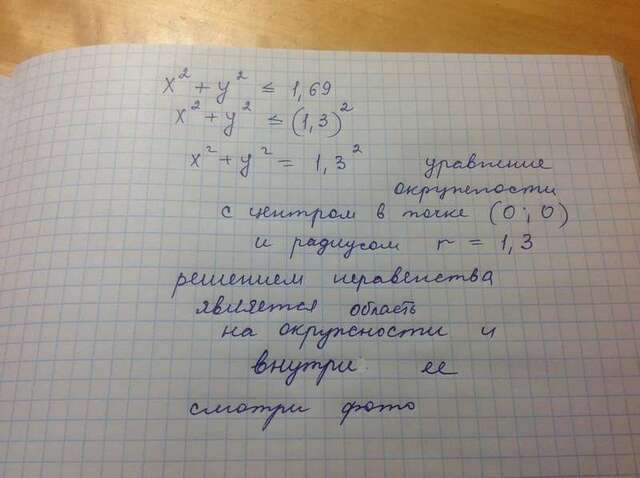 x² + y² ≤ 1,69
x² + y² ≤ (1,3)²
x² + y² = 1,3² уравнение
окружности
с центром в точке (0; 0)
и радиусом r = 1,3
решением неравенства
является область
на окружности и
внутри ее
смотри фото